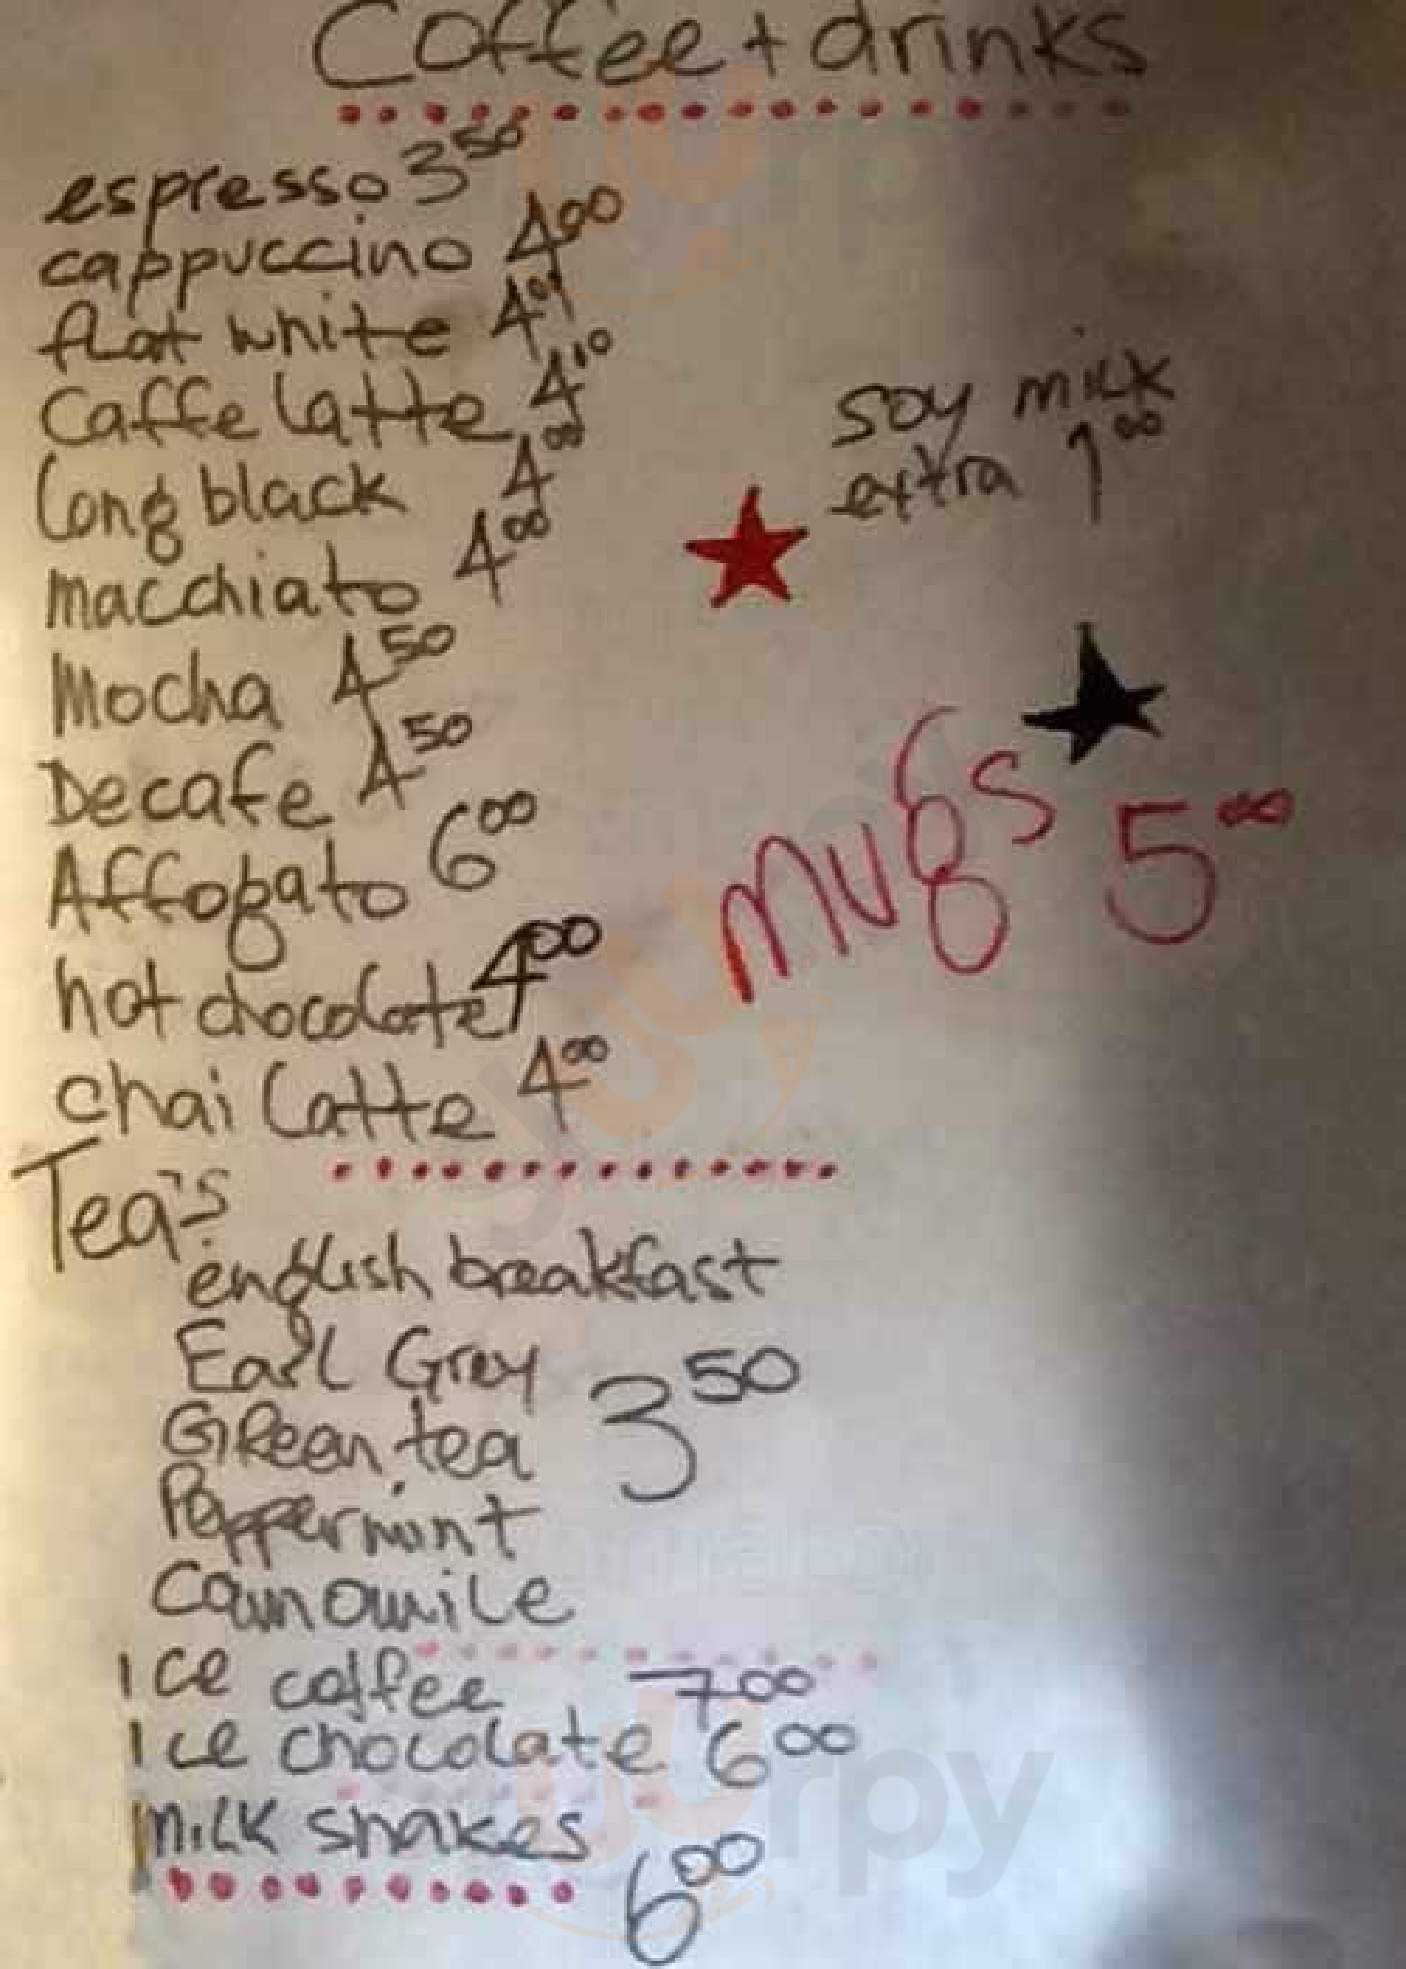 Coffee + drinks
espresso 3 50
cappuccino 4 00
flat white 4 00
Caffe latte 4 00
long black 4 00
macchiato 4 00
Mocha 4 50
Decafe 4 50
Affogato 6 00
hot chocolate 4 00
chai latte 4 00
soy milk
extra 1 00
mugs 5 00
Tea's
english breakfast
Earl Grey
Green tea 3 50
Peppermint
Camomile
Ice coffee 7 00
Ice chocolate 6 00
milk shakes 6 00